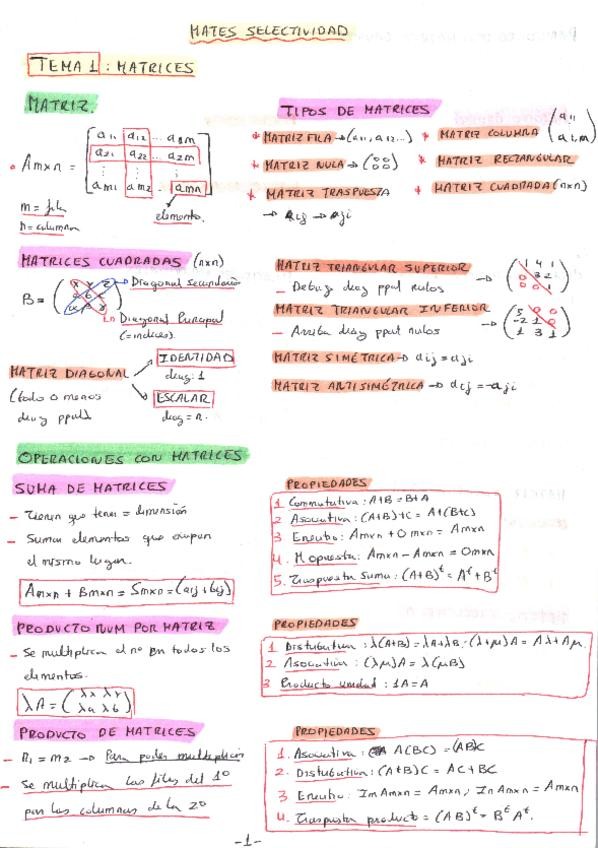 MATES SELECTIVIDAD
TEMA 1: MATRICES
MATRIZ.
Amxn = [a11 a12 ... a1m
a21 a22 ... a2m
⋮ ⋮ ⋮
am1 am2 ... amn]
m = fila
n = columna
elemento.
TIPOS DE MATRICES
* MATRIZ FILA → (a11, a12...)
* MATRIZ COLUMNA
* MATRIZ NULA → (0 0
0 0)
* MATRIZ RECTANGULAR
* MATRIZ TRASPUESTA
→ aij → aji
* MATRIZ CUADRADA (nxn)
MATRICES CUADRADAS (nxn)
B =
Diagonal secundaria
Diagonal Principal
(= indices).
MATRIZ DIAGONAL
(todo 0 menos
diag ppal)
IDENTIDAD
diag: 1
ESCALAR
diag = n.
MATRIZ TRIANGULAR SUPERIOR
- Debajo diag ppal nulos → (1 4 1
0 3 2
0 0 1)
MATRIZ TRIANGULAR INFERIOR
- Arriba diag ppal nulos → (5 0 0
-2 1 0
1 3 1)
MATRIZ SIMÉTRICA → aij = aji
MATRIZ ANTISIMÉTRICA → aij = -aji
OPERACIONES CON MATRICES
SUMA DE MATRICES
- Tienen que tener = dimensión
- Suman elementos que ocupan
el mismo lugar.
Amxn + Bmxn = Smxn = (aij + bij)
PROPIEDADES
1 Conmutativa: A+B = B+A
2 Asociativa: (A+B)+C = A+(B+C)
3 Eneutro: Amxn + 0mxn = Amxn
4. Mopuesta: Amxn - Amxn = 0mxn
5. Traspuesta Suma: (A+B)ᵗ = Aᵗ + Bᵗ
PRODUCTO NUM POR MATRIZ
- Se multiplica el nº en todos los
elementos.
λA = (λx λy
λa λb)
PROPIEDADES
1 Distributiva: λ(A+B) = λA+λB · (λ+μ)A = Aλ + Aμ.
2 Asociativa: (λμ)A = λ(μB)
3 Producto unidad: 1A = A
PRODUCTO DE MATRICES
- n1 = m2 → Para poder multiplicar
- Se multiplica las filas del 1º
por las columnas de la 2º
PROPIEDADES
1. Asociativa: A(BC) = (AB)C
2. Distributiva: (A+B)C = AC + BC
3 Eneutro: Im Amxn = Amxn; In Amxn = Amxn
4. Traspuesta producto = (AB)ᵗ = Bᵗ Aᵗ.
-1-